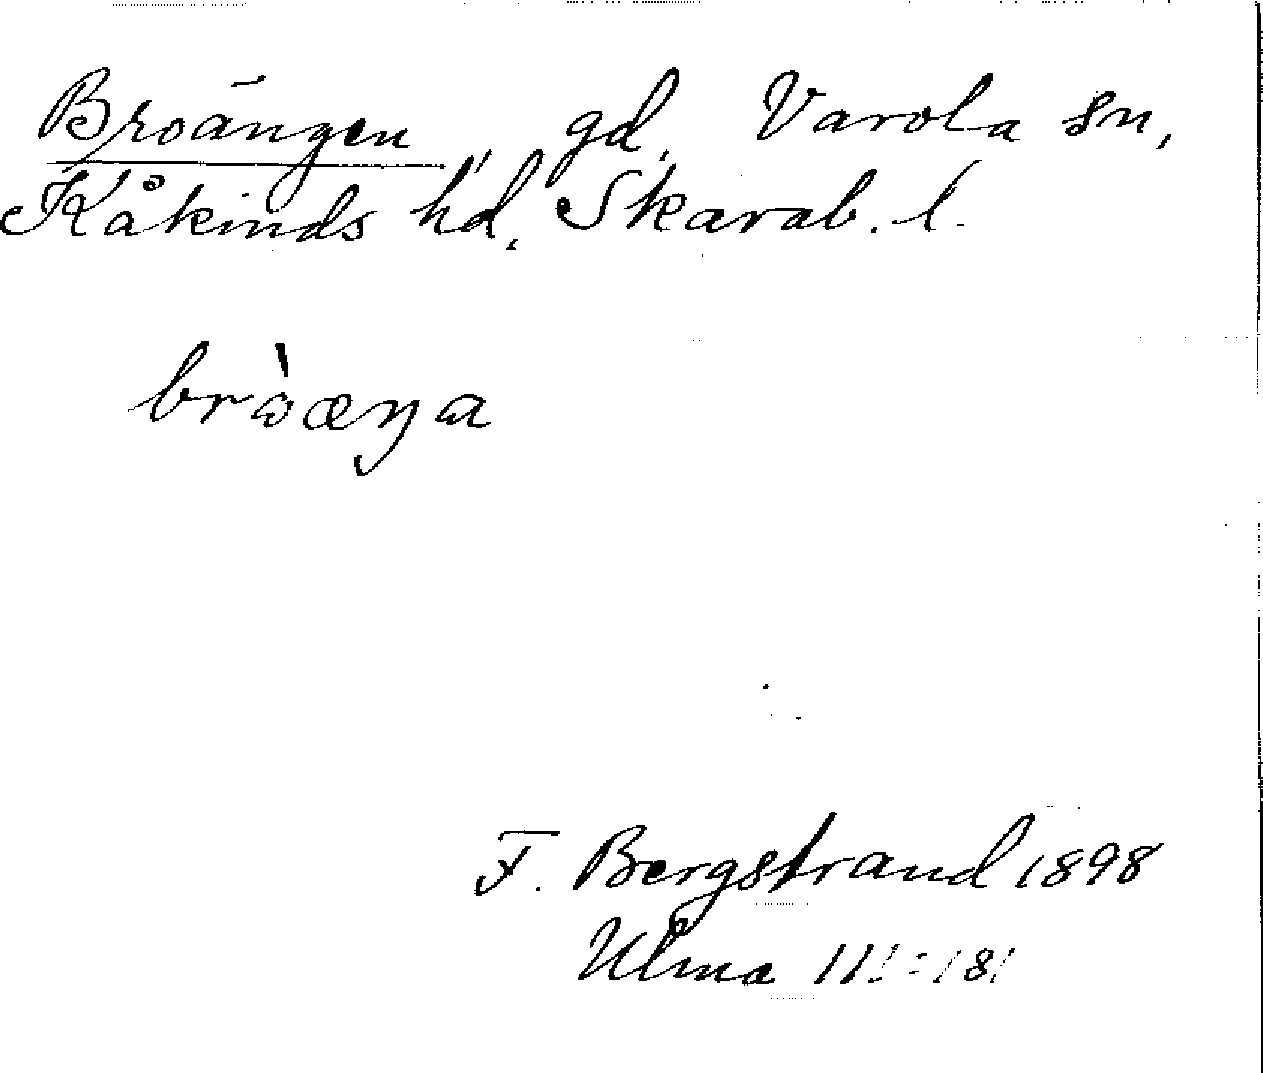 Broängen, gd, Varola sn,
Kåkinds hd, Skarab. l.
bròæŋa
F. Bergstrand 1898
Ulma 111:181